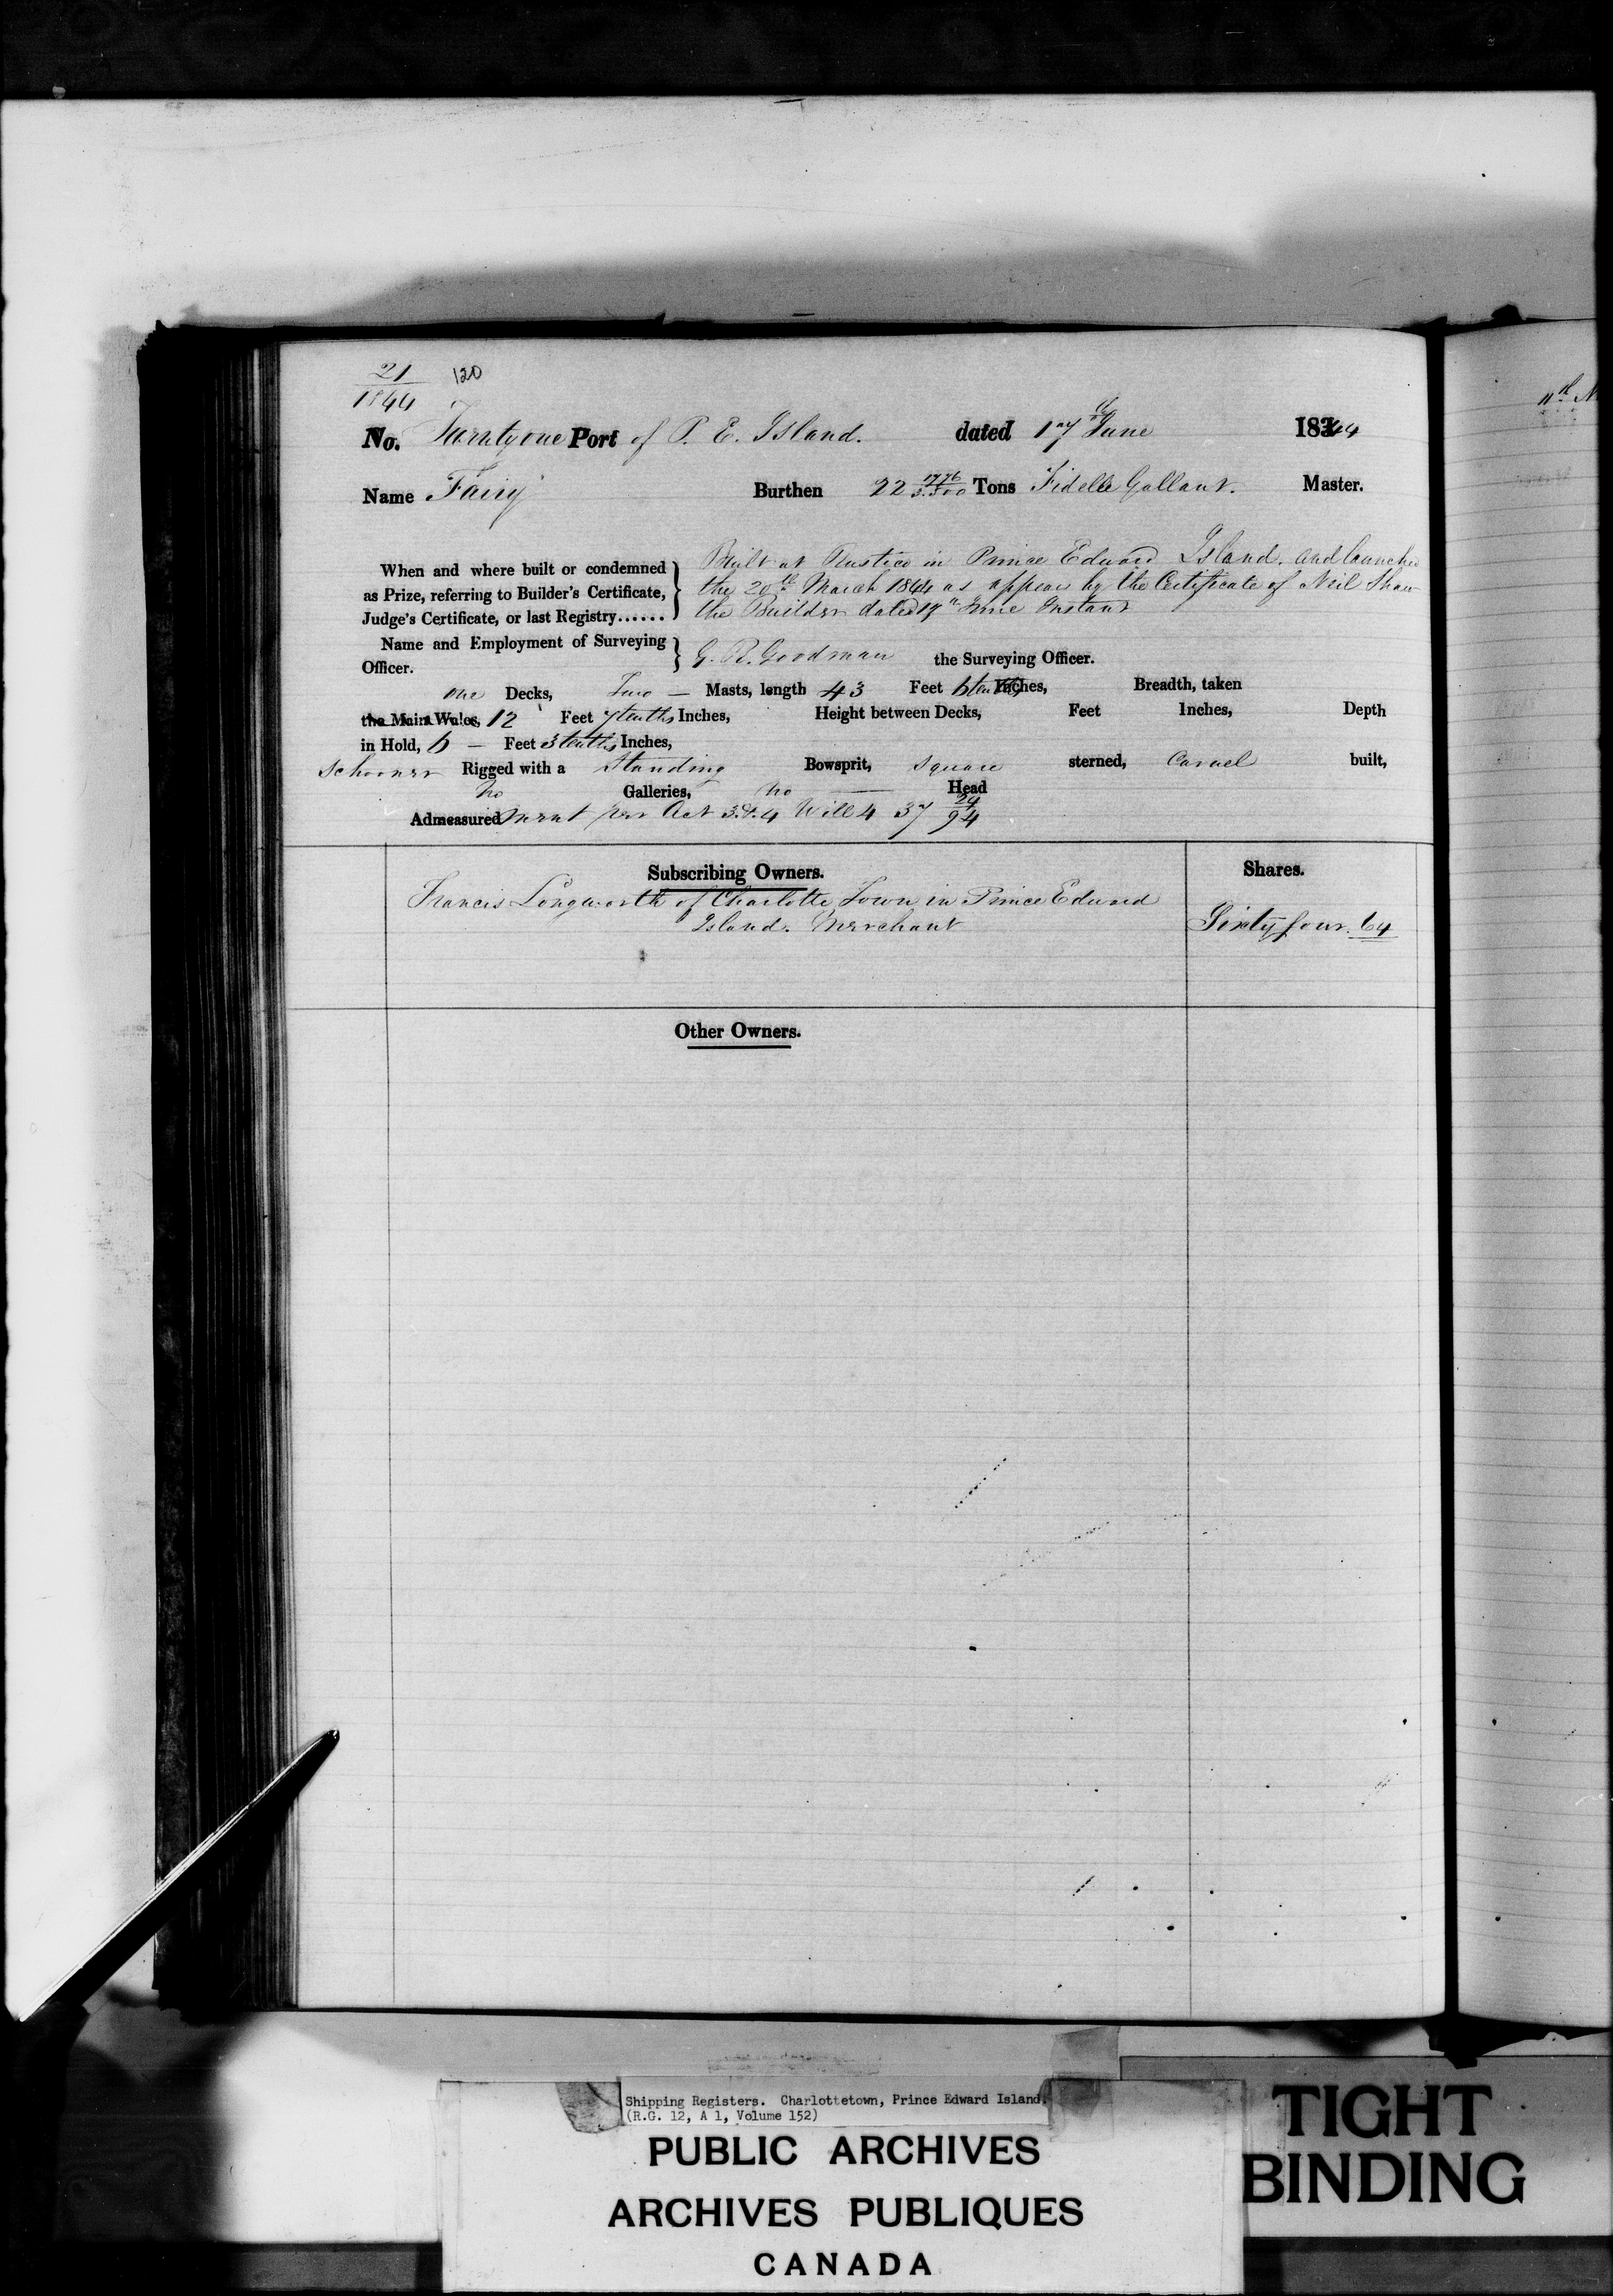 21 120
1844
No. Twenty one Port of P. E. Island. dated 17th June 18344
Name Fairy Burthen 22 1776/3500 Tons Fidelle Gallant. Master.
When and where built or condemned
as Prize, referring to Builder's Certificate,
Judge's Certificate, or last Registry......
Built at Rustico in Prince Edward Island. and launched
the 20th March 1844 as appears by the Certificate of Neil Shaw
the Builder dated 17th June Instant
Name and Employment of Surveying
Officer.
G. R. Goodman the Surveying Officer.
one Decks, Two — Masts, length 43 Feet 6 tenths Inches, Breadth, taken
the Main Wales, 12 Feet 7 tenths Inches, Height between Decks, Feet Inches, Depth
in Hold, 6 — Feet 3 tenths Inches,
Schooner Rigged with a Standing Bowsprit, Square sterned, Carvel built,
no Galleries, no — Head
Admeasured ment per Act 3.&.4 Will 4 37 24/94
Subscribing Owners. Shares.
Francis Longworth of Charlotte Town in Prince Edward
Island. Merchant Sixty four. 64
Other Owners.
11th
Shipping Registers. Charlottetown, Prince Edward Island.
(R.G. 12, A 1, Volume 152)
PUBLIC ARCHIVES
ARCHIVES PUBLIQUES
CANADA
TIGHT
BINDING